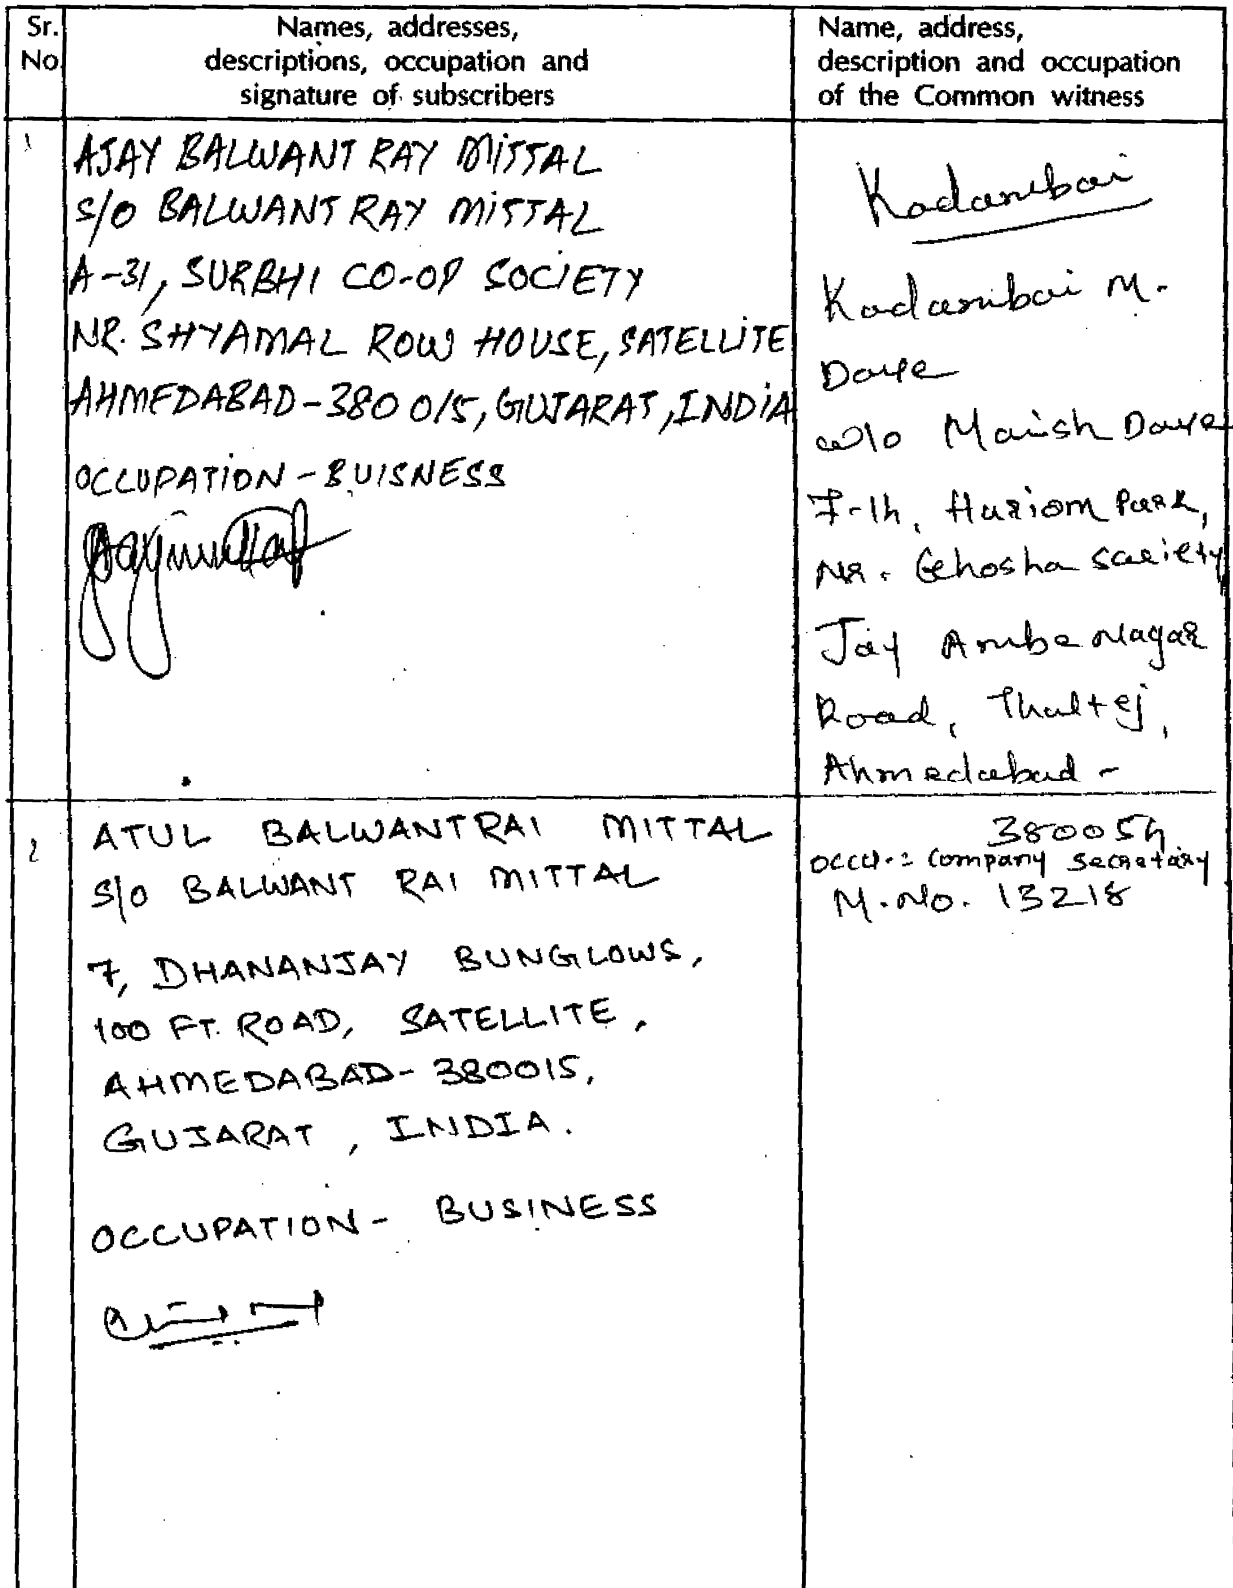 Sr.
No.
Names, addresses,
descriptions, occupation and
signature of subscribers
Name, address,
description and occupation
of the Common witness
1
AJAY BALWANT RAY MITTAL
S/O BALWANT RAY MITTAL
A-31, SURBHI CO-OP SOCIETY
NR. SHYAMAL ROW HOUSE, SATELLITE
AHMEDABAD-380 015, GUJARAT, INDIA
OCCUPATION - BUISNESS
Kadambari
Kadambari M.
Dave
w/o Manish Dave
Hariom Park,
Nr. Ghosha Society
Jay Ambe Nagar
Road, Thaltej,
Ahmedabad -
2
ATUL BALWANTRAI MITTAL
S/O BALWANT RAI MITTAL
7, DHANANJAY BUNGLOWS,
100 FT. ROAD, SATELLITE,
AHMEDABAD- 380015,
GUJARAT, INDIA.
OCCUPATION - BUSINESS
380054
OCCU.: Company Secretary
M.No. 13218